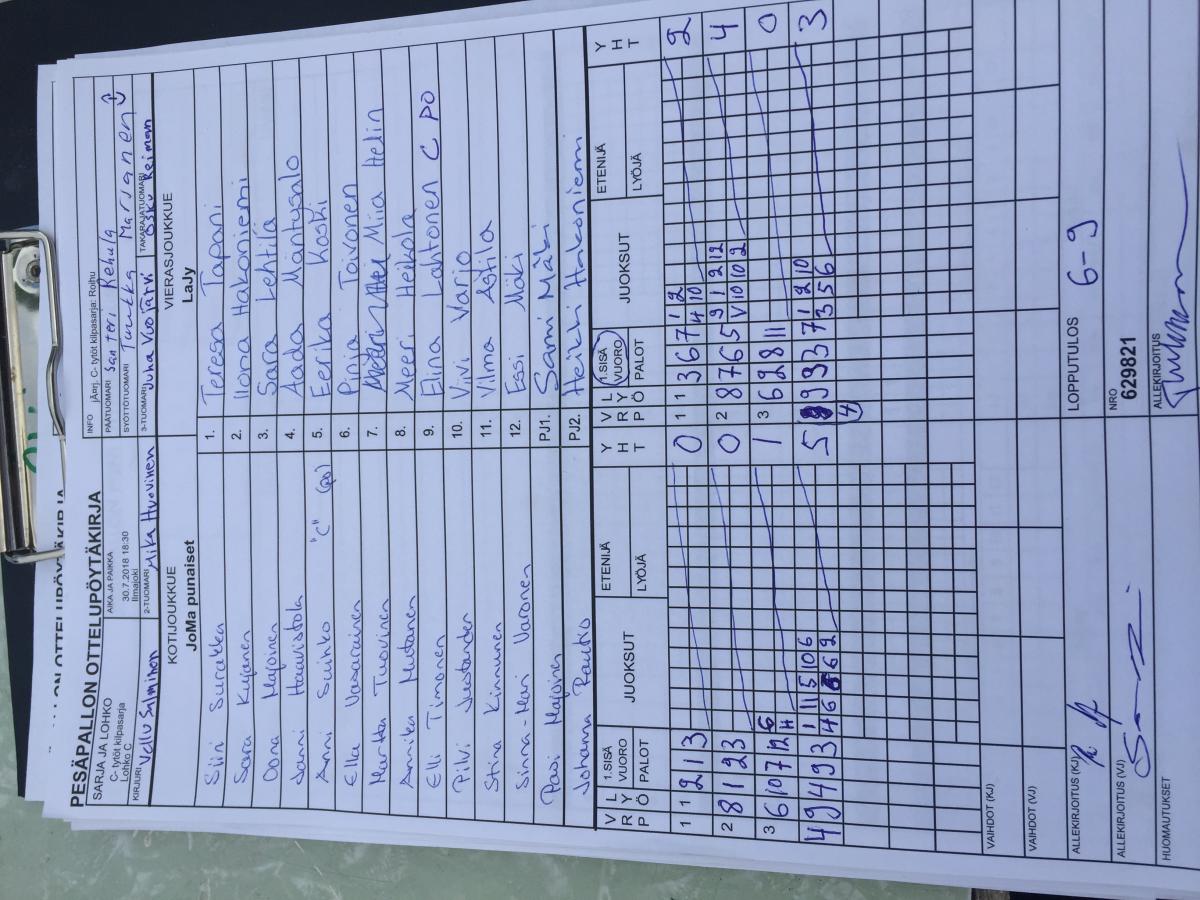 PESÄPALLON OTTELUPÖYTÄKIRJA
SARJA JA LOHKO
C- tytöt kilpasarja
Lohko C
AIKA JA PAIKKA
30.7.2018 18:30
Ilmajoki
INFO jÄrj. C- tytöt kilpasarja: Roihu
PÄÄTUOMARI Santeri Rehula
SYÖTTÖTUOMARI Tuukka Marjanen
KIRJURI Vellu Salminen
2-TUOMARI Mika Huovinen
3-TUOMARI Juha Vuojärvi
TAKARAJATUOMARI Osku Reiman
KOTIJOUKKUE
JoMa punaiset
VIERASJOUKKUE
LaJy
Siiri Surakka 1. Teresa Tapani
Sara Kujanen 2. Ilona Hakoniemi
Oona Majoinen 3. Sara Lehtilä
Janni Haavistola 4. Aada Mäntysalo
Anni Suihko "C" (po) 5. Eerika Koski
Ella Vasarainen 6. Pinja Toivonen
Martta Tuovinen 7. Miia Helin
Annika Mutanen 8. Meeri Heikola
Elli Timonen 9. Elina Lahtonen C PO
Pilvi Justander 10. Vivi Varjo
Stina Kinnunen 11. Vilma Astila
Sinna-Mari Varonen 12. Essi Mäki
Pasi Majoinen PJ1. Sami Mäki
Johanna Rautio PJ2. Heikki Hakoniemi
VRÖ LYP 1.SISÄ VUORO PALOT JUOKSUT ETENIJÄ LYÖJÄ YHT VRÖ LYP 1.SISÄ VUORO PALOT JUOKSUT ETENIJÄ LYÖJÄ YHT
1 1 2 1 3 0 1 1 3 6 7 1 2 2
4 10
2 8 1 2 3 0 2 8 7 6 5 9 1 2 12 4
V 10 10 2
3 6 10 7 12 6 1 3 6 9 8 11 0
4 9 4 9 3 1 11 5 10 6 5 9 3 3 7 1 2 10 3
4 6 6 6 2 3 5 6
4
VAIHDOT (KJ)
VAIHDOT (VJ)
ALLEKIRJOITUS (KJ)
LOPPUTULOS 6-9
ALLEKIRJOITUS (VJ)
NRO
629821
HUOMAUTUKSET
ALLEKIRJOITUS